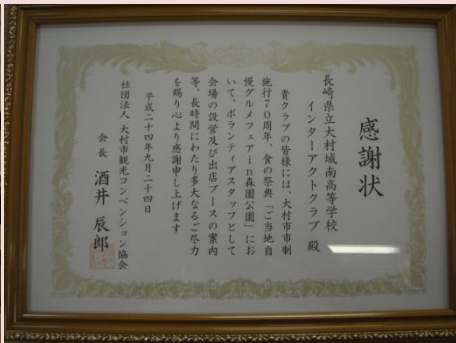 感謝状
長崎県立大村城南高等学校
インターアクトクラブ 殿
貴クラブの皆様には、大村市市制
施行70周年、食の祭典「ご当地自
慢グルメフェアin森園公園」にお
いて、ボランティアスタッフとして
会場の設営及び出店ブースの案内
等、長時間にわたり多大なるご尽力
を賜り心より感謝申し上げます
平成二十四年九月二十四日
社団法人 大村市観光コンベンション協会
会長 酒井辰郎